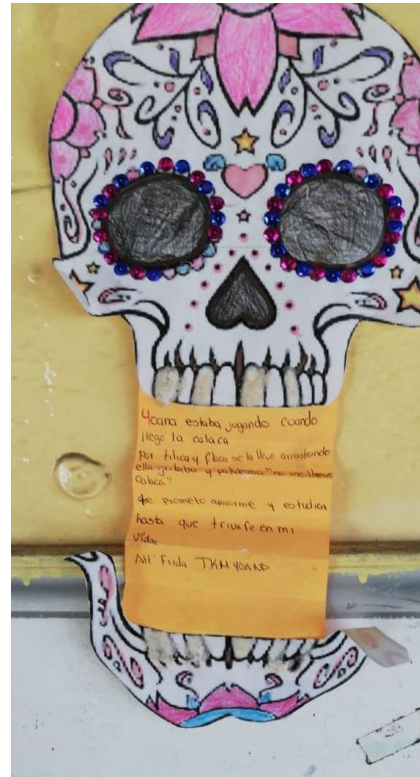 Yoana estaba jugando cuando
llego la calaca
por filica y flaca se la llevo arrastrando
ella gritaba y pataleaba "no me lleves
calaca"
te prometo aplicarme y estudiar
hasta que triunfe en mi
vida
Att: Frida TKM YOANA